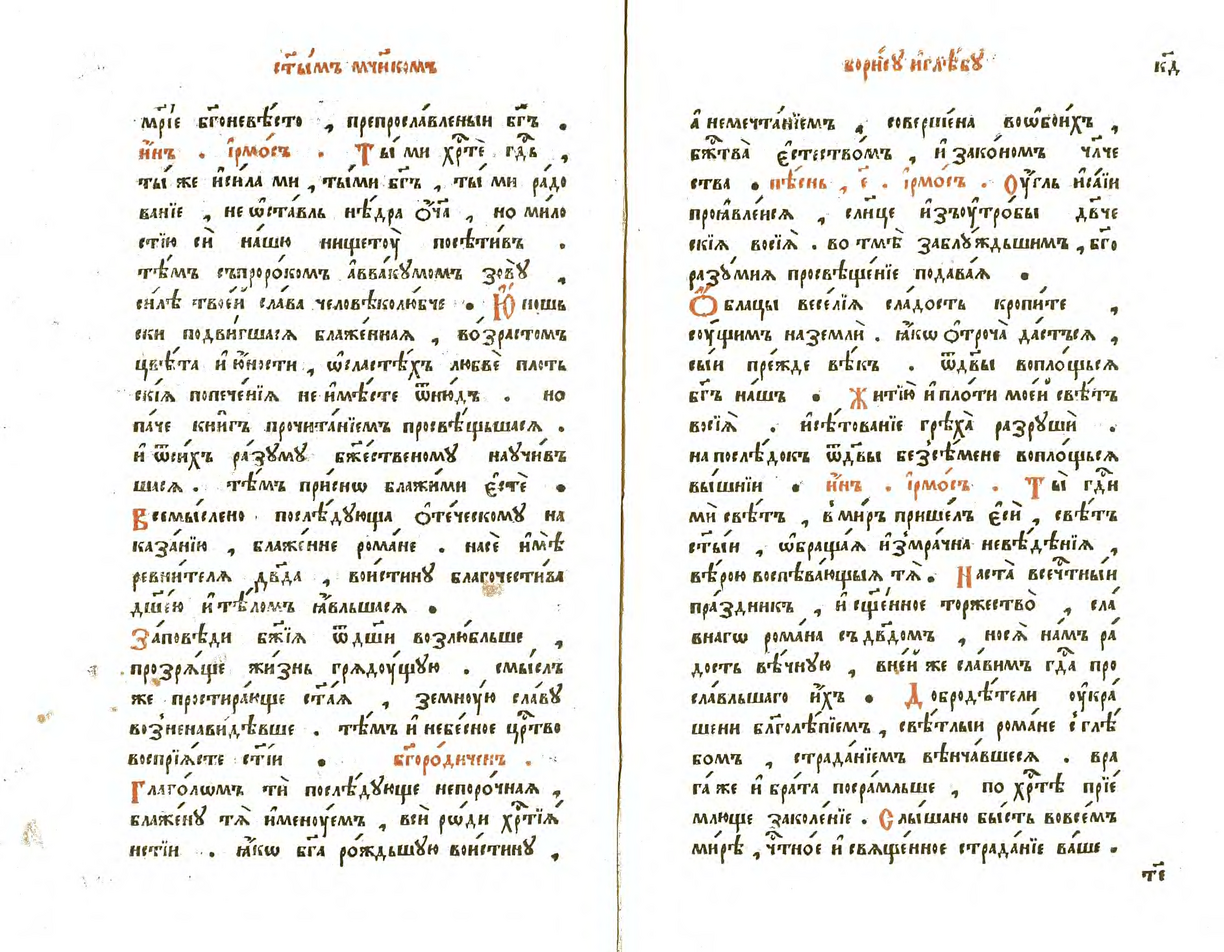 ст҃ы́мъ мч҃нкомъ
мр҃і́е бг҃оневѣ́сто , препросла́вленыи бг҃ъ .
и҆́нъ . і҆рмо́съ . Ты́ ми хрⷭ҇тѐ гдⷭ҇ь ,
ты́ же и҆си́ла ми , ты́ми бг҃ъ , ты́ ми ра́до
ванїе , не ѡ҆ста́вль нѣ́дра ѻ҆́ч҃а , но ми́ло
стїю си́ на́шю нищетоу̀ посѣти́въ .
тѣ́мъ съпроро́комъ а҆вваку́момъ зовꙋ̀ ,
си́лѣ твое́й сла́ва человѣколю́бче . Ю҆́ношь
ски подви́гшася блаже́нная , во́зрастомъ
цвѣ́та и҆ ю҆́ности , ѡ҆сласте́хъ любвѐ плоть
скі́я попече́нїя не и҆мѣ́сте ѿню́дъ . но
па́че кни́гъ прочита́нїемъ просвѣ́щьшася .
и҆ ѿси́хъ ра́зꙋмꙋ бж҃е́ственомꙋ научи́въ
шася . тѣ́мъ при́снѡ блажи́ми є҆стѐ .
Всемы́слено послѣ́дꙋюща ѻ҆те́ческомꙋ на
каза́нїю , блаже́нне рома́не . насѐ и҆мѣ̀
ревни́теля дв҃да , вои́стинꙋ благочести́ва
дш҃е́ю и҆ тѣ́ломъ ꙗ҆́вльшася .
За́повѣди бж҃їя ѿдш҃и возлю́бльше ,
прозря́ще жи́знь грядоу́щую . смы́слъ
же простира́юще ст҃а́я , земноу́ю сла́вꙋ
возненави́дѣвше . тѣ́мъ и҆ небе́сное црⷭ҇тво
воспрїя́сте ст҃і́и . бг҃оро́диченъ .
Глаго́лѡмъ тѝ послѣ́дꙋюще непоро́чная ,
блаже́нꙋ тѧ̀ и҆менꙋ́емъ , всѝ рѡ́ди хрⷭ҇тїѧ́
нстїи . ꙗ҆́кѡ бг҃а ро́ждьшꙋю вои́стинꙋ ,
бори́сꙋ и҆глѣ́бꙋ
к҃д
а҆ немечта́нїемъ , соверше́на воѡ҆бои́хъ ,
бж҃тва̀ є҆стество́мъ , и҆ зако́номъ чл҃че
ства . пѣ́снь , є҃ . і҆рмо́съ . Оу҆́гль и҆са́їи
проꙗвле́ися , сл҃нце и҆зъоутро́бы дв҃че
скі́я восїѧ̀ . во тмѣ̀ заблꙋ́ждьшимъ , бг҃о
разꙋ́мия просвѣще́нїе подава́я .
Ѻ҆́блацы весе́лїя сла́дость кропи́те ,
соу́щимъ на землѝ . ꙗ҆́кѡ ѻ҆троча̀ да́стъся ,
сы́и пре́жде вѣ́къ . ѿдв҃ы вопло́щься
бг҃ъ на́шъ . Житїю̀ и҆ пло́ти мое́й свѣ́тъ
восїѧ̀ . и҆сѣ́тованїе грѣха̀ разрꙋшѝ .
на послѣ́докъ ѿдв҃ы безсѣ́мене вопло́щься
вы́шнїи . и҆́нъ . і҆рмо́съ . Ты̀ гдⷭ҇и
мѝ свѣ́тъ , в҆ ми́ръ прише́лъ є҆сѝ , свѣ́тъ
ст҃ы́и , ѡ҆браща́я и҆з̾мра́чна невѣ́дѣнїя ,
вѣ́рою воспѣва́ющыя тѧ̀ . Наста̀ всечⷭ҇тны́и
пра́здникъ , и҆ сщ҃е́нное торжество̀ , сла́
внагѡ рома́на съ дв҃домъ , носѧ̀ на́мъ ра́
дость вѣ́чную , в҆не́й же сла́вимъ гдⷭ҇а про
сла́вльшаго и҆́хъ . Добродѣ́тели оу҆кра́
шени бл҃голѣ́пїемъ , свѣ́тлыи рома́не с҆ глѣ́
бомъ , страда́нїемъ вѣнча́вшеся . вра
га́ же и҆ бра́та посра́мльше , по хрⷭ҇тѣ̀ прїе́
млюще заколе́нїе . Слы́шано бы́сть вовсе́мъ
ми́рѣ , чⷭ҇тное и҆ свяще́нное страда́нїе ва́ше .
те҃